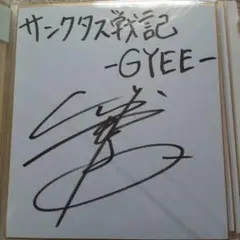 サンクタス戦記
-GYEE-